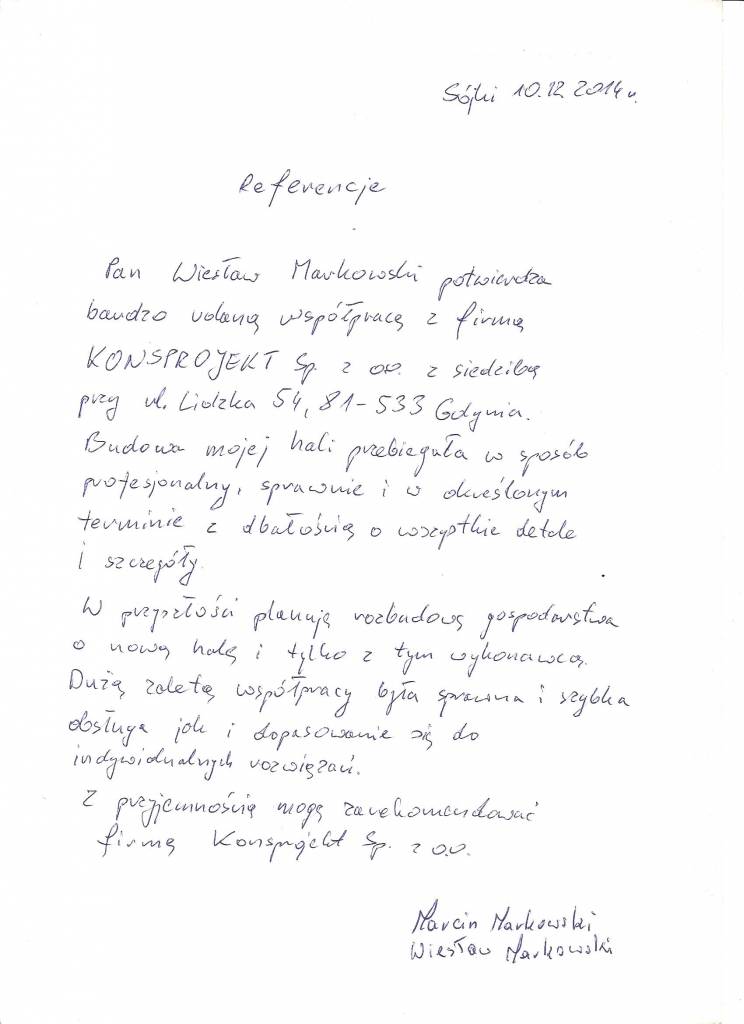 Sójki 10.12.2014 r.
Referencje
Pan Wiesław Markowski potwierdza
bardzo udaną współpracę z firmą
KONSPROJEKT Sp. z o.o. z siedzibą
przy ul. Lidzka 54, 81-533 Gdynia.
Budowa mojej hali przebiegała w sposób
profesjonalny, sprawnie i w określonym
terminie z dbałością o wszystkie detale
i szczegóły.
W przyszłości planuję rozbudowę gospodarstwa
o nową halę i tylko z tym wykonawcą.
Dużą zaletą współpracy była sprawna i szybka
obsługa jak i dopasowanie się do
indywidualnych rozwiązań.
Z przyjemnością mogę zarekomendować
firmę Konsprojekt Sp. z o.o.
Marcin Markowski
Wiesław Markowski